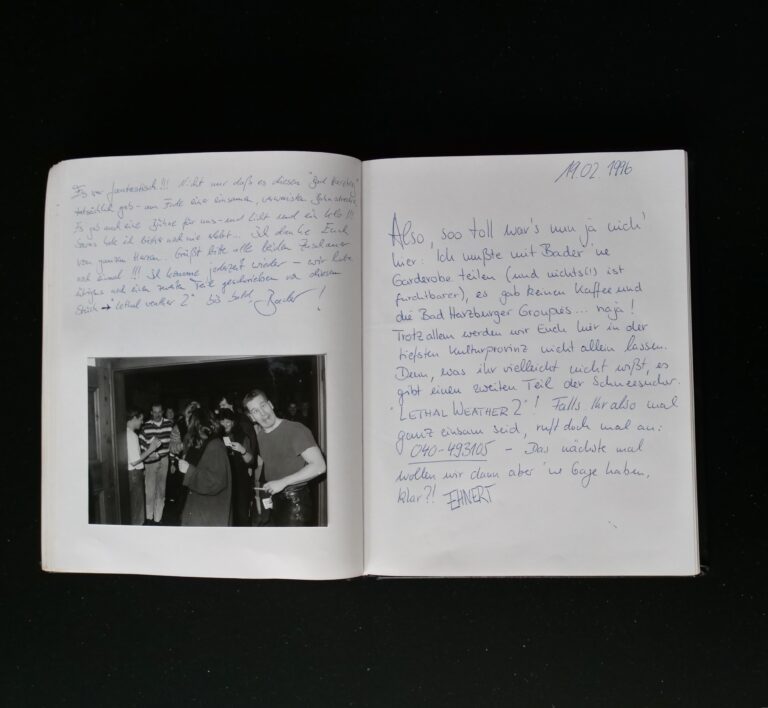 Es war fantastisch!!! Nicht nur daß es diesen "Bad Harzburg"
tatsächlich gab - am Ende eine einsamen, verweisten
Es gab auch eine Bühne für uns - und Licht und ein Klo!!!
Sowas habe ich bisher noch nie erlebt... Ich danke Euch
von ganzem Herzen. Grüßt bitte alle beiden Zuschauer
noch einmal!!! Ich komme jederzeit wieder - wir haben
übrigens noch einen zweiten Teil geschrieben von diesem
Stück → "Lethal weather 2" bis bald, Bader!
19.02.1996
Also, soo toll war's nun ja nich'
hier. Ich mußte mit Bader 'ne
Garderobe teilen (und nichts(!) ist
furchtbarer), es gab keinen Kaffee und
die Bad Harzburger Groupies... naja!
Trotz allem werden wir Euch hier in der
tiefsten Kulturprovinz nicht allein lassen.
Denn, was ihr vielleicht nicht wißt, es
gibt einen zweiten Teil der Schneesucher.
"LETHAL WEATHER 2"! Falls Ihr also mal
ganz einsam seid, ruft doch mal an:
040-493105 - Das nächste mal
wollen wir dann aber 'ne Gage haben,
klar?! EHNERT